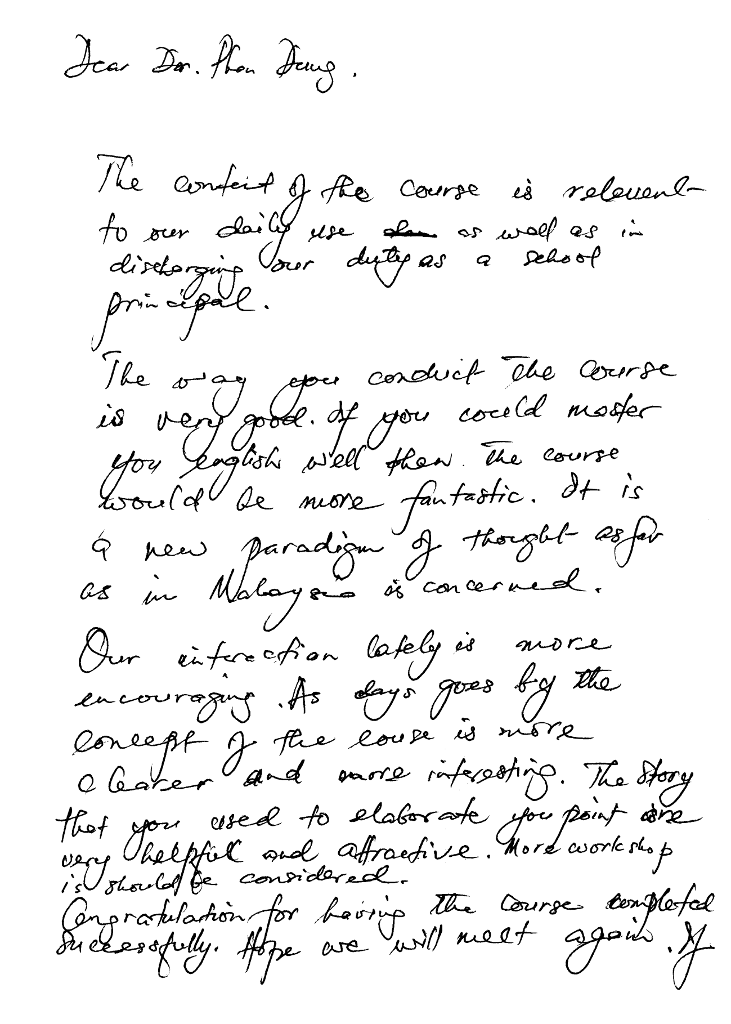 Dear Dr. Phan Dung.
The content of the course is relevent
to our daily use as well as in
discharging our duty as a school
principal.
The way you conduct the course
is very good. If you could master
you english well then the course
would be more fantastic. It is
a new paradigm of thought as far
as in Malaysia is concerned.
Our interaction lately is more
encouraging. As days goes by the
concept of the couse is more
clearer and more interesting. The story
that you used to elaborate you point are
very helpful and attractive. More workshop
is should be considered.
Congratulation for having the course completed
successfully. Hope we will meet again. If